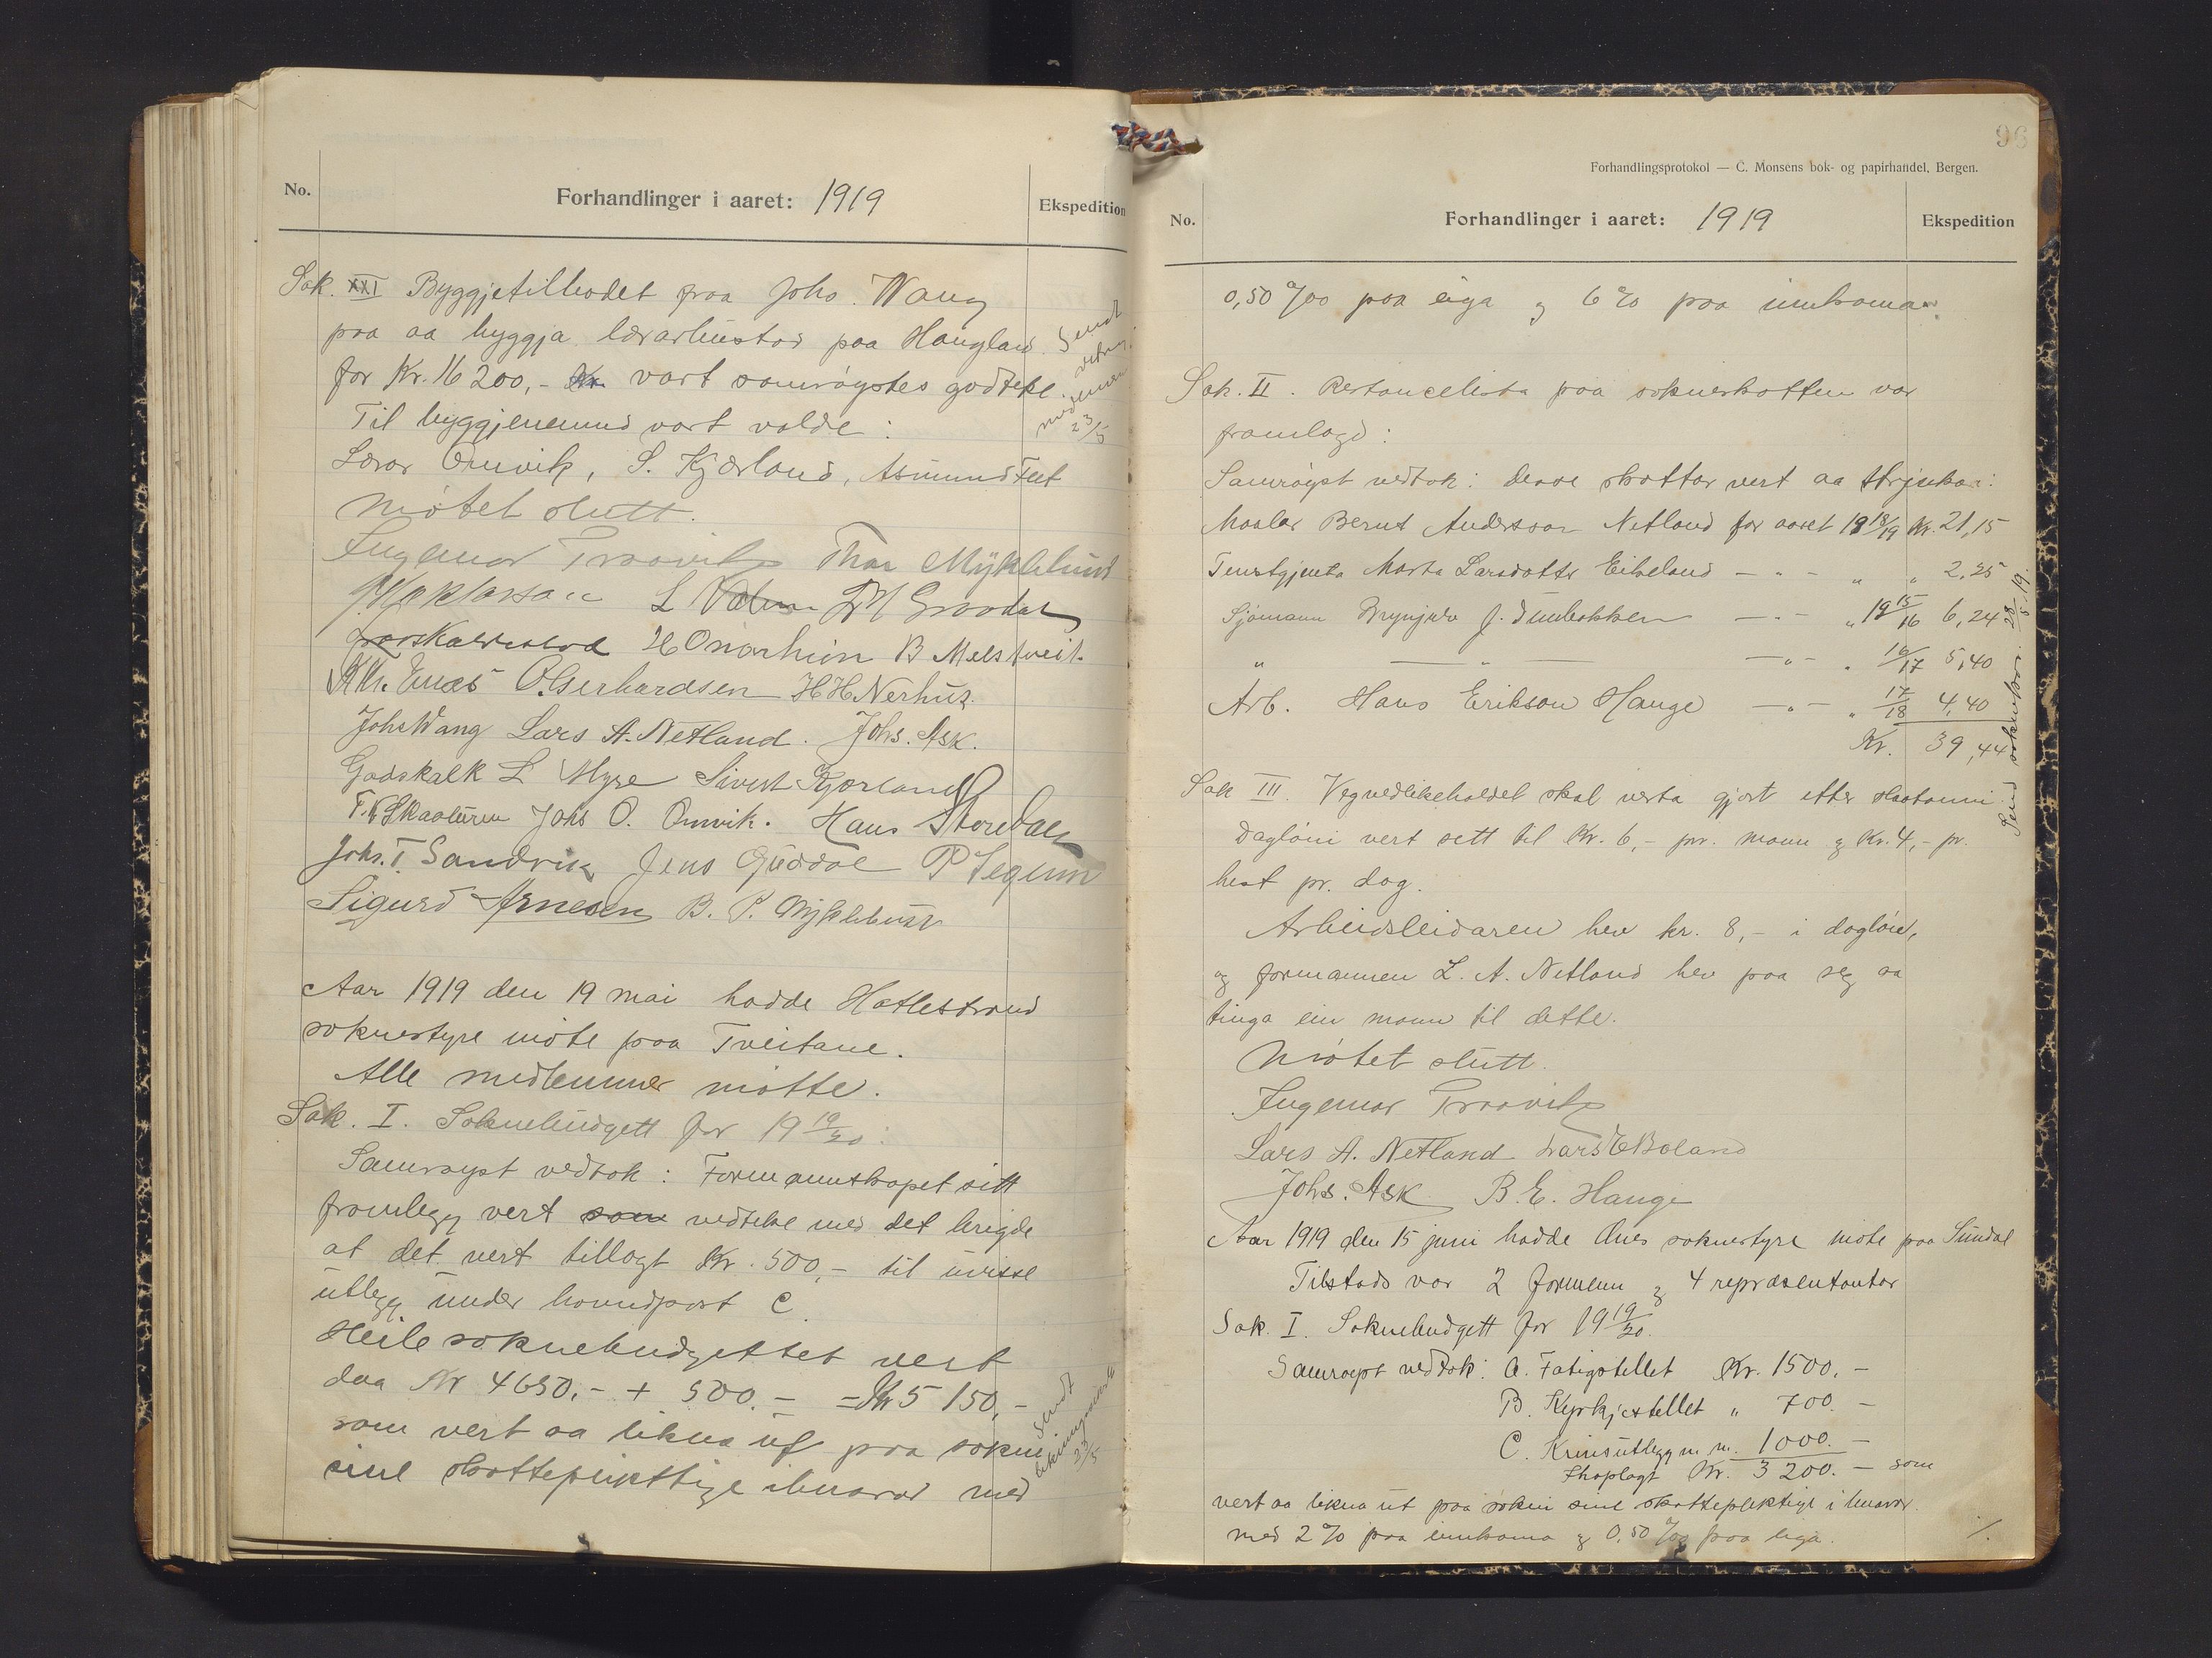 No.
Forhandlinger i aaret: 1919
Ekspedition
Sak. XXI Byggjetilbodet fraa Johs. Wang
paa aa byggja lærarbustad paa Haugland
for Kr. 16 200,- vart samrøystes godteke.
Til byggjenemnd vart valde:
Lærar Omvik, S. Kjærland, Asmund Feet
Møtet slutt.
Sendt
23/5
Ingemar Traavik Thor Myklebust
L
B Melstveit
O. Gerhardsen H H Nerhus
Johs Wang Lars A. Netland. Johs. Ask.
Godskalk L Myre Sivert Kjærland
Johs O. Omvik. Hans Storedale
Johs. T. Sandvik Jens Guddal P Segenn
Sigurd Arnesen B. P. Myklebust
Aar 1919 den 19 mai hadde Hatlestrand
soknestyre møte paa Tveitane.
Alle medlemmer møtte.
Sak. I. Soknebudgett for 19 19/20:
Samrøyst vedtok: Formannskapet sitt
framlegg vert som vedteke med det brigde
at det vert tillagt Kr. 500,- til uvisse
utlegg under hovudpost C
Heile soknebudgettet vert
daa Kr 4650.- + 500.- = Kr 5 150,-
som vert aa likna ut paa sokni
sine skattepliktige ibuarar med
Sendt
likningsnemdi
23/5
96
Forhandlingsprotokol — C. Monsens bok- og papirhandel, Bergen.
No.
Forhandlinger i aaret: 1919
Ekspedition
0,50 ‰ paa eiga og 6 % paa innkoma.
Sak. II. Restancelista paa sokneskatten var
framlagd:
Samrøyst vedtok: desse skattar vert aa strjuka:
Maalar Bernt Anderssen Netland for aaret 19 18/19 Kr. 21,15
Tenstgjenta Marta Larsdotter Eikeland — " — " " 2,25
Sjømann Brynjulv J. Sunbakken — " — " 19 15/16 6,24
" — " — — " — " 16/17 5,40
Arb. Hans Erikson Hauge — " — " 17/18 4,40
Kr. 39,44
Send soknekass. 28/5-19.
Sak III. Vegvedlikehaldet skal verta gjort etter skotanni
Dagløni vert sett til Kr. 6,- pr. mann og Kr. 4,- pr.
hest pr. dag.
Arbeidsleidaren hev kr. 8,- i dagløn,
og formannen L. A. Netland hev paa seg aa
tinga ein mann til dette.
Møtet slutt.
Ingemar Traavik
Lars A. Netland Lars E Bøland
Johs. Ask B. E. Hauge
Aar 1919 den 15 juni hadde Ænes soknestyre møte paa Sundal
Tilstads var 2 formenn og 4 repræsentantar
Sak. I. Soknebudgett for 19 19/20.
Samrøyst vedtok: A. Fatigstellet Kr. 1500.-
B. Kyrkjestellet " 700.-
C. Krinsutlegg m. m. 1000.-
Ihoplagt Kr. 3 200.- som
vert aa likna ut paa sokni sine skattepliktige ibuarar
med 2 % paa innkoma og 0,50 ‰ paa eiga.
./.